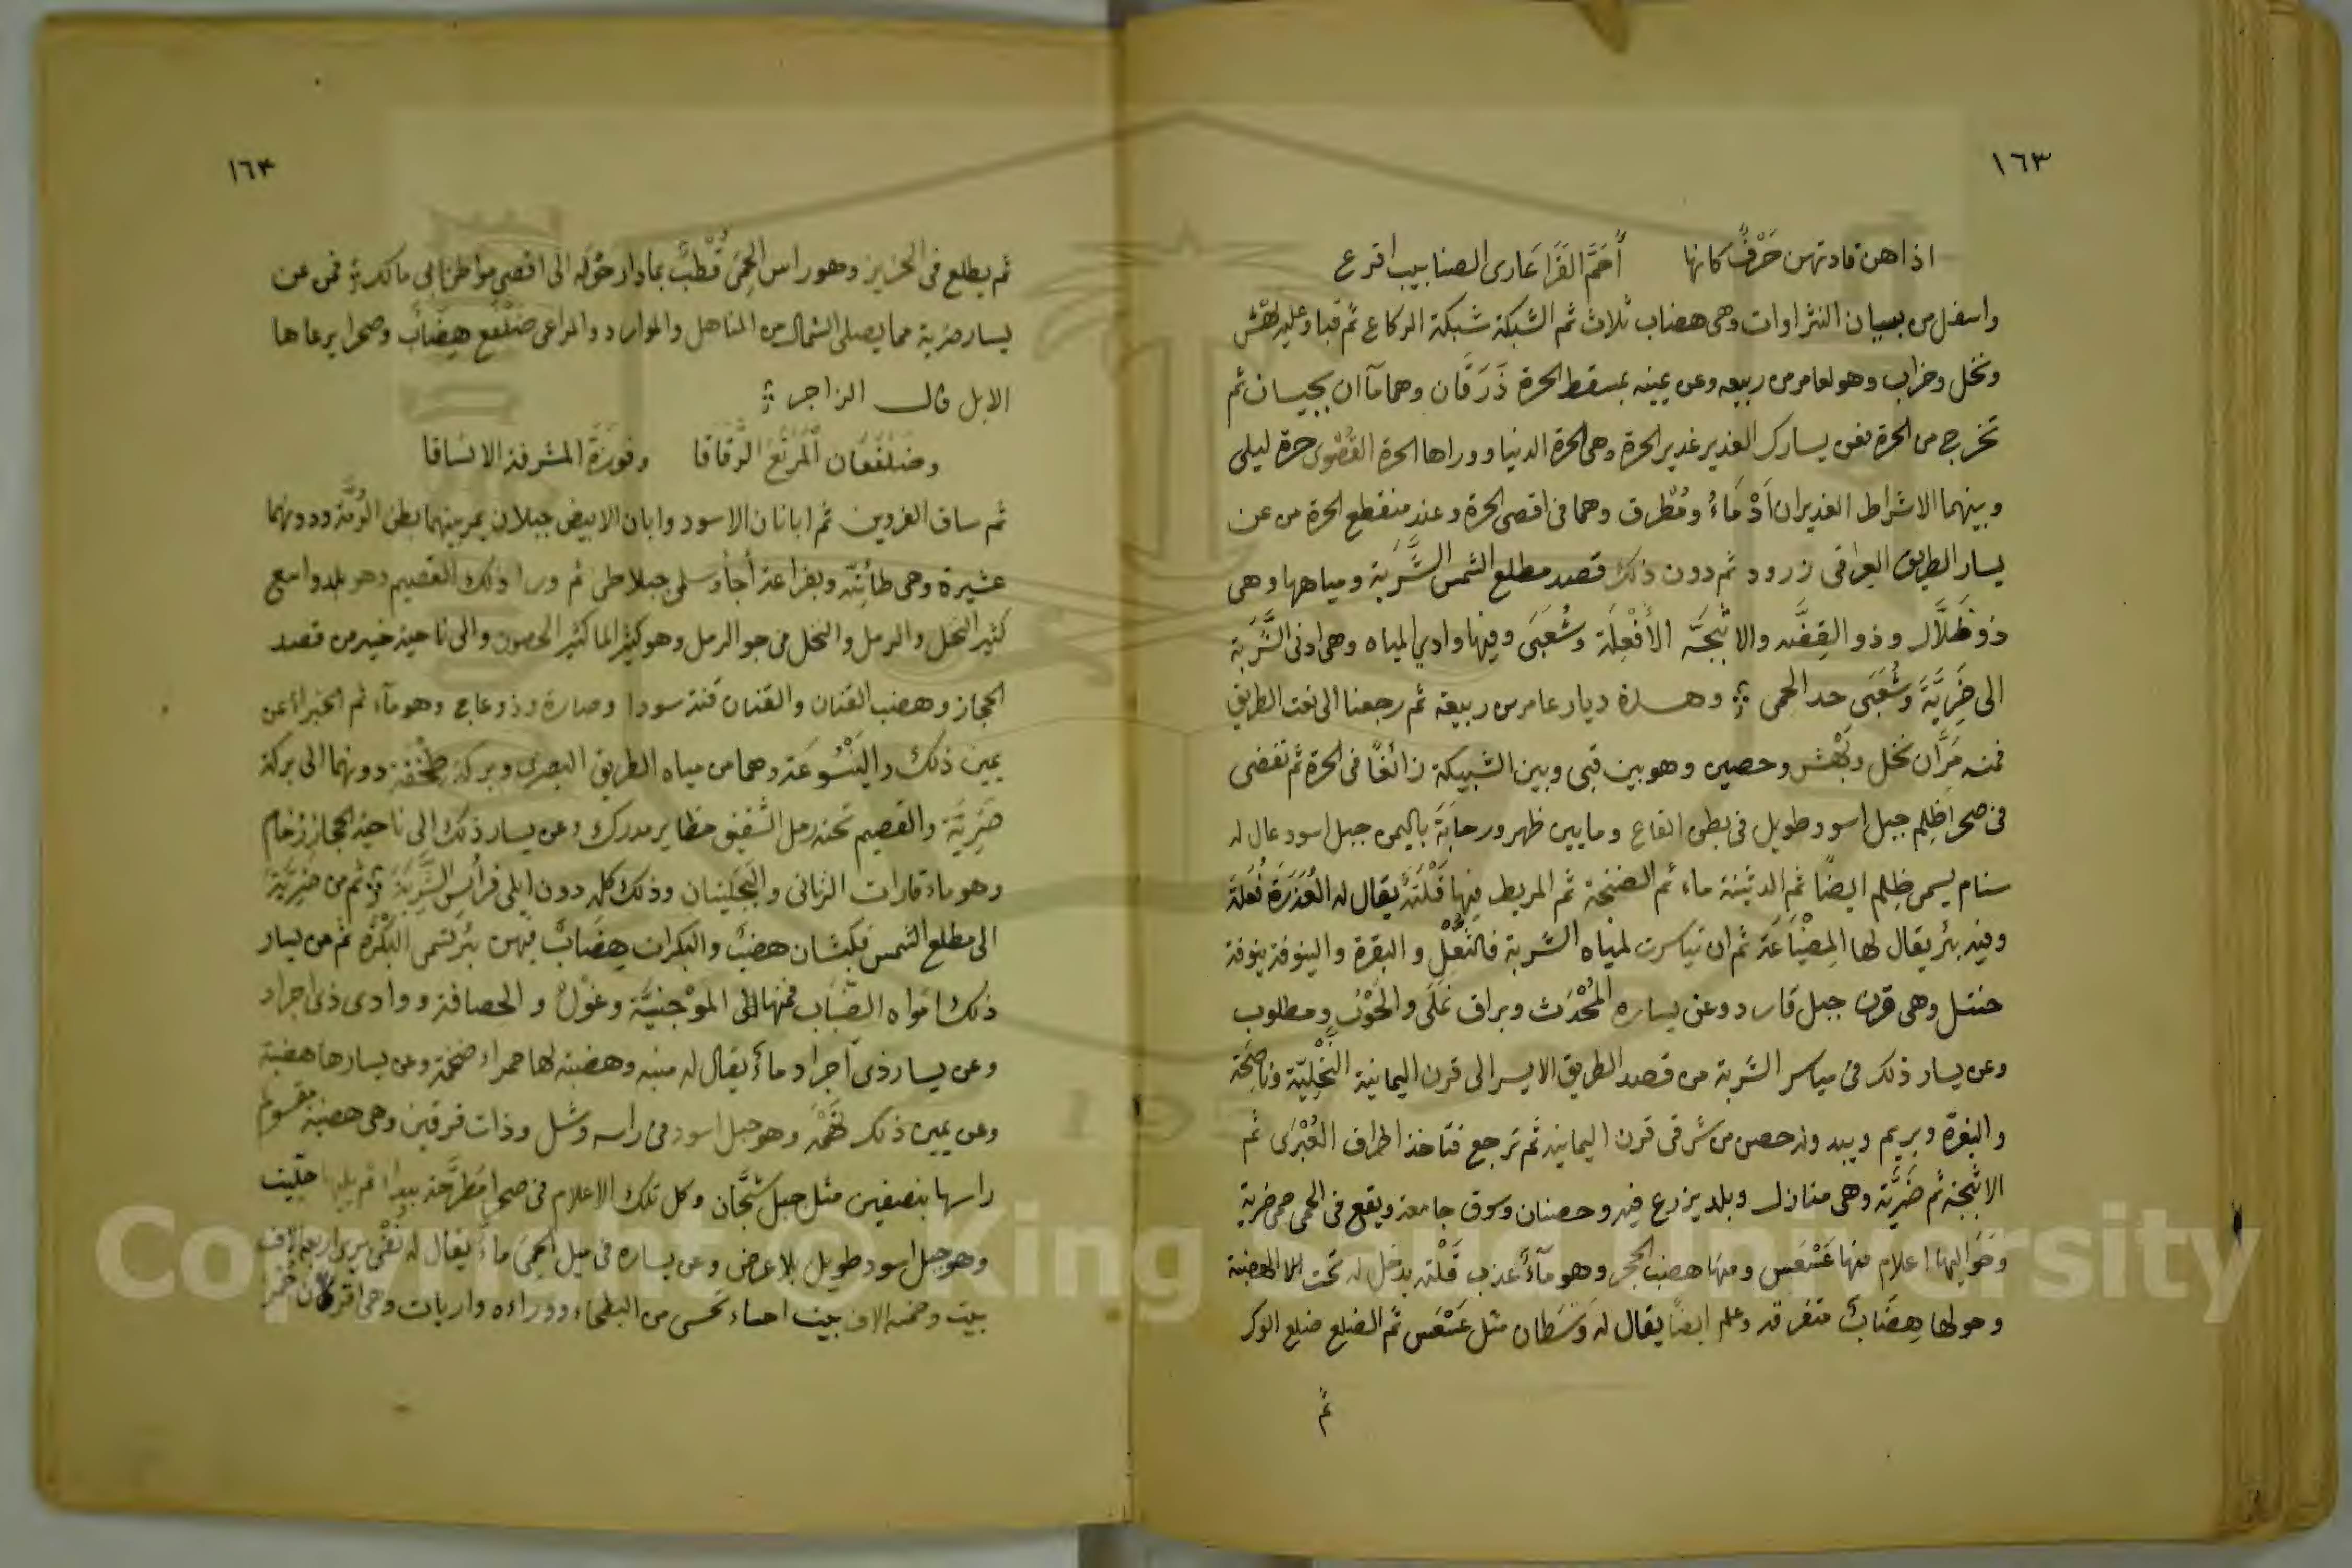 ١٦٣
اذا هن قادتهن حَرْفٌ كانها أَحَمُّ القَرَا عَارى الصنابيب اقرع
واسفل من بيسان النثراوات وهى هضاب ثلاث ثم الشبكة شبكة الركاع ثم قبا وعليه بهش
ونخل وخراب وهو لعامر من ربيعه وعن يمينه بمسقط الحرة ذَرَقَان وهما مآان بجيسان ثم
تخرج من الحرة فعن يسارك الغدير غدير الحرة وهى الحرة الدنيا ووراها الحرة القُصْوى حرة ليلى
وبينهما الاشراط الغديران اَدْمَاءُ ومُطْرِق وهما فى اقصى الحرة وعند منقطع الحرة من عن
يسار الطريق العراقى زرود ثم دون ذلك قصد مطلع الشمس الشَّرَبّة ومياهها وهى
ذو ظَلَّال وذو القِفَّه والاثْبِجَة الأفْعِلَة وشُعَبَى وفيها وادي المياه وهى ادنى الشَّرَبّة
الى ضَرِيَّةَ وشُعَبَى حد الحمى وهذه ديار عامر من ربيعة ثم رجعنا الى نعت الطريق
فمنه مَرَّان نخل وبَهْش وحصين وهو بين قبى وبين الشبيكة زائغًا فى الحرة ثم تفضى
فى صحرا ظِلِم جبل اسود طويل فى بطن القاع وما بين ظهر ورحابَةَ باليمن جبل اسود عال له
سنام يسمى ظِلِم ايضًا ثم الدثينة ماء ثم الضنحة ثم المريط فيها قَلْتَةٌ يقال له العُذَرَة فُعَلَة
وفيه بئر يقال لها المِصْبَاعَة ثم ان تياسرت لمياه الشربة فالثُّعْلِ والبقرة والينوفة ينوفة
خنثل وهى قرن جبل قارد وعن يساره المُحْدَث وبراق نَمَلَى والحَوْب ومطلوب
وعن يسار ذلك فى مياسر الشربة من قصد الطريق الايسر الى قرن اليمانية النَّخْلِيّة وناصِحَة
والبغرة وبريم وبيد وله حصن من شرقى قرن اليمانيه ثم ترجع فتاخذ اطراف العُبْرَى ثم
الاثْبِجَة ثم ضَرِيَّة وهى منازل وبلد يزرع فيه وحصنان وسوق جامعة ويقع فى الحمى حمى ضرية
وحواليها اعلام منها عَسْعَس ومنها هضب الحجر وهو مآء عذب قَلْتَه يدخل له تحت الهضبة
وحولها هِضَابٌ متفرقة وعلم ايضًا يقال له وَسَطان مثل عَسْعَس ثم الضلع ضلع الوكر
ثم
١٦٤
ثم يطلع فى الحزيز وهو راس الحِمَى قُطْبٌ بما دار حَوْله الى اقصى مواطن ابى مالك فمن عن
يسار ضرية مما يصلى الشمال من المناهل والموارد والمراعى ضَلْفَع هِضَابٌ وصحرا يرعاها
الابل قال الراجز
وضَلْفَعَان المَرْتَعَ الرَّقَاقَا وفَوْرَةَ المشرفة الانساقا
ثم ساق الغروين ثم ابانان الاسود وابان الابيض جبلان يمر بينهما بطن الرُّمَّة ودونهما
عشيرة وهى طائيّة وبفراعة أجأ وسلمى جبلا طى ثم ورا ذلك القصيم وهو بلد واسع
كثير النخل والرمل والنخل فى جو الرمل وهو كثير الما كثير الحصون والى ناحية خيبر من قصد
الحجاز وهضب القنان والقنان قنة سودا وصارة وذو عاج وهو مآء ثم الخبراء عن
يمين ذلك والينْسُوعَة وهما من مياه الطريق البصرى وبركة طِخْفة دونهما الى بركة
ضَرِيَّة والقصيم تحته رمل الشقيق مظاير مدرك وعن يسار ذلك الى ناحية الحجاز زخام
وهو ماء قارات الزبانى والنخليتان وذلك كله دون ايلى فراس الشَّربَّة ثم من ضَرِيَّةَ
الى مطلع الشمس فكبشان هضبٌ والبكرات هِضَابٌ فيهن بئر تسمى البَكْرَة ثم من يسار
ذلك امواه الضِّبَاب فمنها المَوْجنيَّة وغَوْلٌ والحصافة ووادى ذى اجراد
وعن يسار ذى اَجراد ماءٌ يقال له منيه وهضبة لها حمراء ضخمة وعن يسارها هضبة
وعن يمين ذلك ظَهْمَة وهو جبل اسود فى راسه وشل وذات فرقين وهى هضبة مقسوم
راسها بنصيفين مثل جبل شَجَّان وكل تلك الاعلام فى صحرا مَطْرَحة بيدا ثم يليها حليت
وهو جبل اسود طويل بلا عرض وعن يساره فى ميل الحِمَى ماءٌ يقال له نَفْى يرى اربعة الاف
بيت وخمسه الاف بيت احساء تحسى من البطحاء ووراءه واريات وهى اقرن حمر